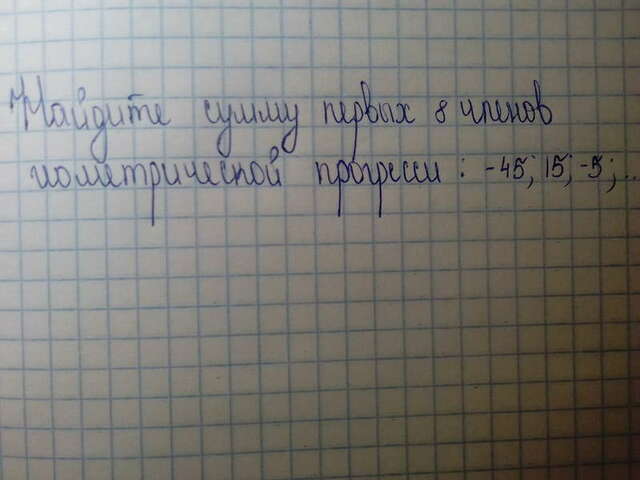 Найдите сумму первых 8 членов
геометрической прогрессии: -45; 15; -5;...